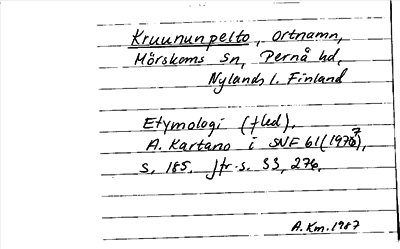 Kruununpelto, ortnamn,
Mörskoms sn, Pernå hd,
Nylands l. Finland
Etymologi (fled),
A. Kartano i SNF 61 (1977),
s. 185. Jfr s. 33, 276.
A.Km.1987